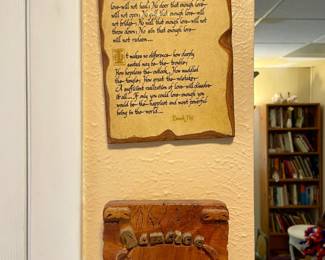 love will not heal; No door that enough love
will not open; No gulf that enough love will
not bridge; No wall that enough love will not
throw down; No sin that enough love
will not redeem...
It makes no difference how deeply
seated may be the trouble;
How hopeless the outlook; How muddled
the tangle; How great the mistake;
A sufficient realization of love will dissolve
it all... If only you could love enough you
would be the happiest and most powerful
being in the world...